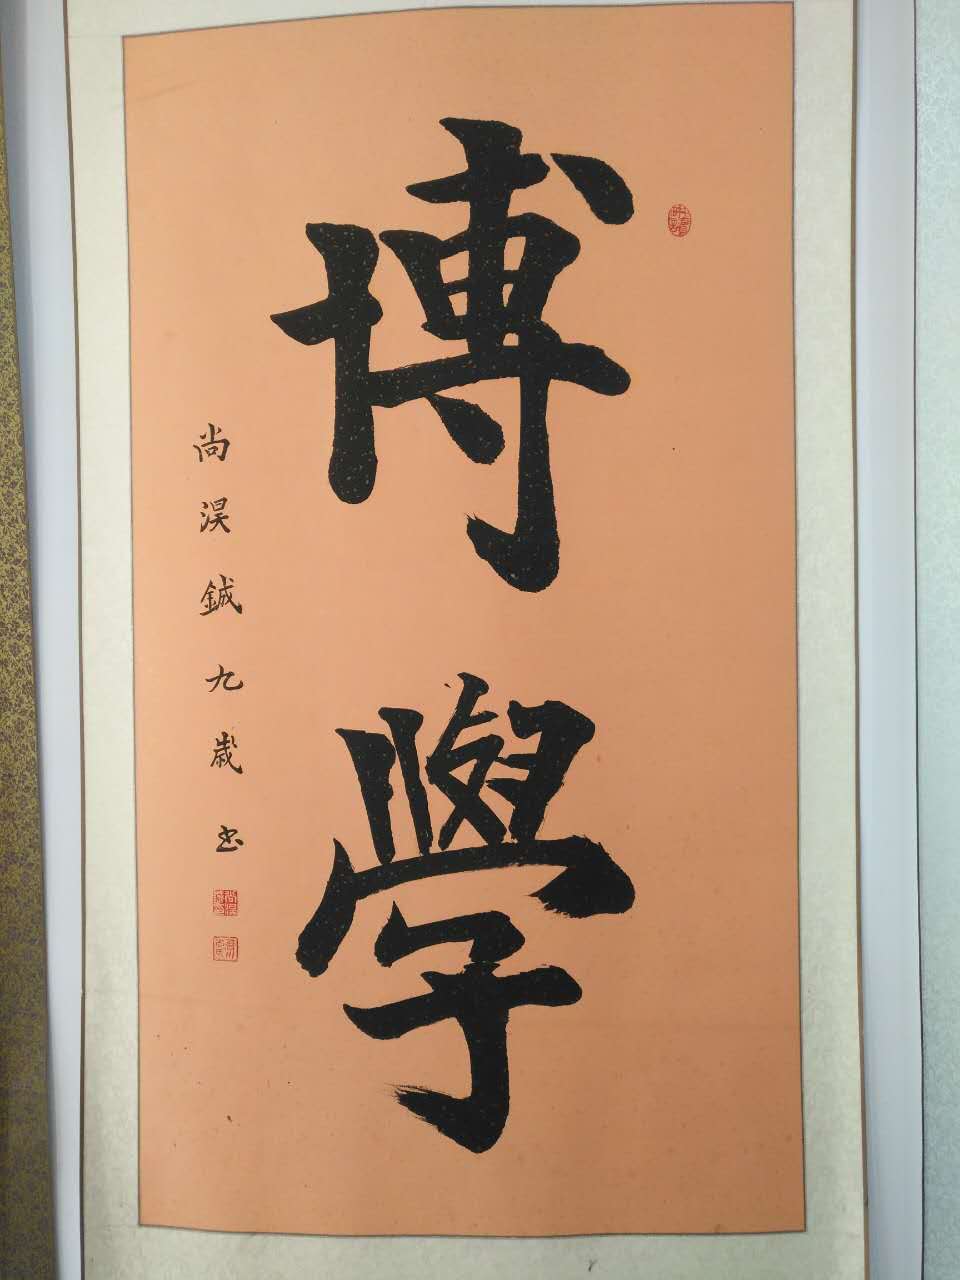 博學
尚淏鋮九歲书